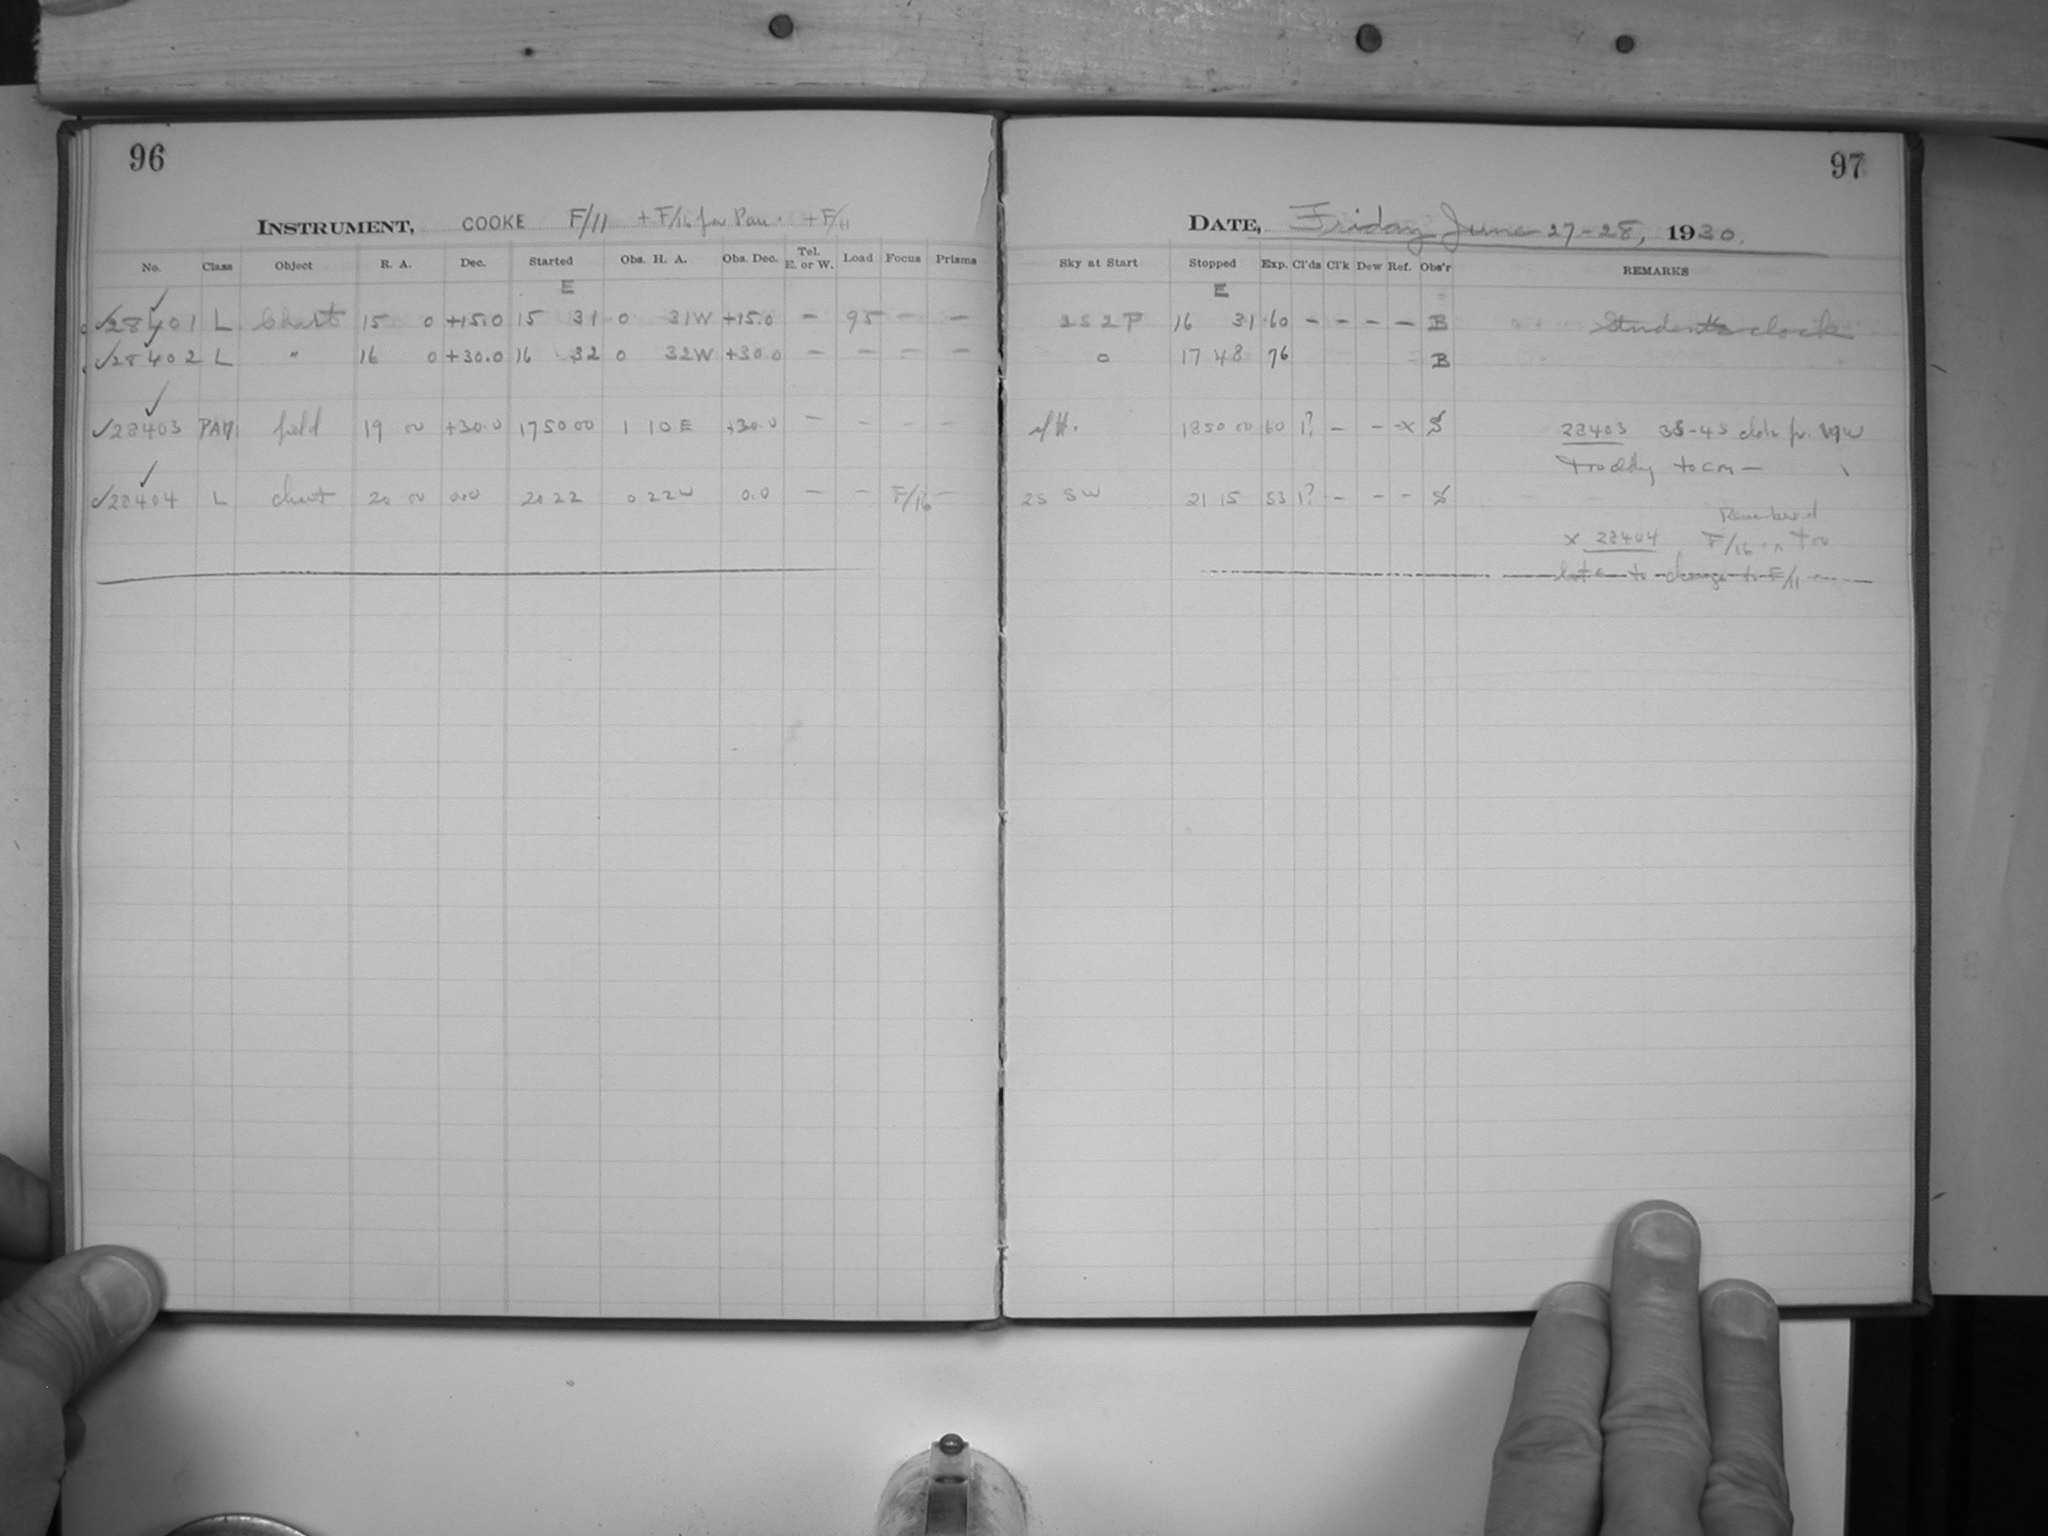 96
INSTRUMENT, COOKE F/11 + F/16 for Pan. + F/11
No. Class Object R. A. Dec. Started Obs. H. A. Obs. Dec. Tel. E. or W. Load Focus Prisms
E
✓28401 L Chart 15 0 +15.0 15 31 0 31W +15.0 – 95 – –
✓28402 L " 16 0 +30.0 16 32 0 32W +30.0 – – – –
✓28403 PAN. field 19 00 +30.0 17 50 00 1 10 E +30.0 – – – –
✓28404 L chart 20 00 0.0 20 22 0 22W 0.0 – – F/16 –
97
DATE, Friday June 27-28, 1930.
Sky at Start Stopped Exp. Cl'ds Cl'k Dew Ref. Obs'r REMARKS
E
2S 2P 16 31 60 – – – – B Student's clock
0 17 48 76 B
18 50 00 60 1? – – x S 28403 3S-4S
to com –
2S SW 21 15 53 1? – – – S
Remembered
x 28404 F/16 in too
late to change to F/11